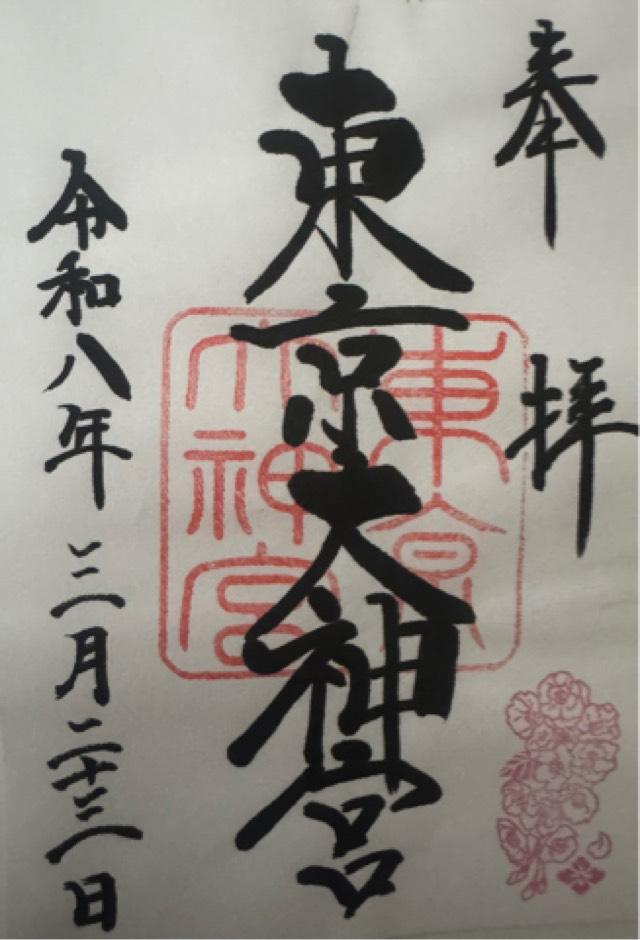 奉拝
東京大神宮
東京
大神宮
令和八年三月二十三日